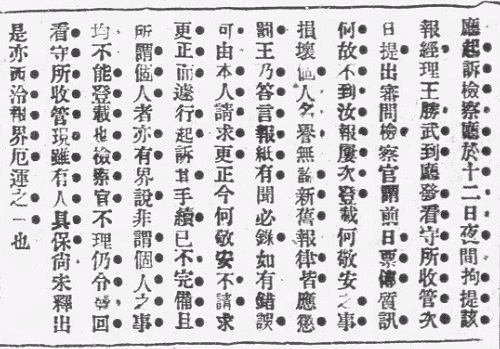 應起訴檢察廳於十二日夜間拘提該
報經理王勝武到廳發看守所收管次
日提出審問檢察官謂前日票傳質訊
何故不到汝報屢次登載何敬安之事
損壞個人名譽無論新舊報律皆應懲
罰王乃答言報紙有聞必錄如有錯誤
可由本人請求更正今何敬安不請求
更正而遽行起訴其手續已不完備且
所謂個人者亦有界說非謂個人之事
均不能登載也檢察官不理仍令帶回
看守所收管現雖有人具保尙未釋出
是亦西汾報界厄運之一也